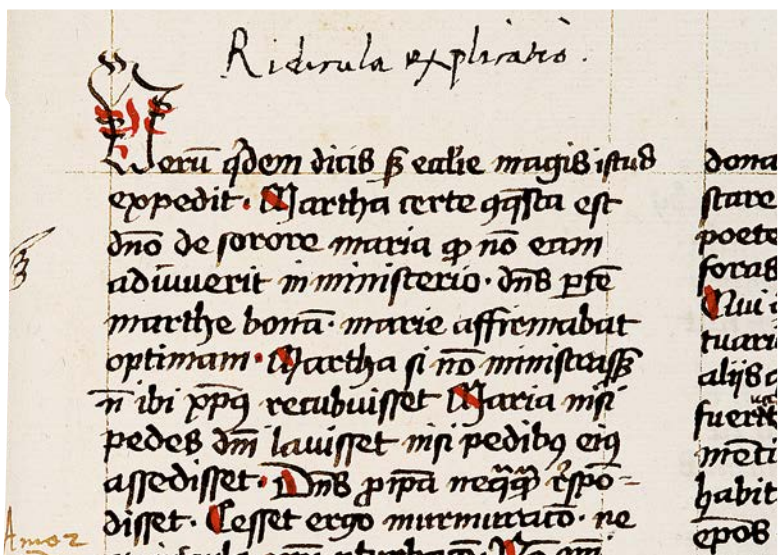 Ridicula explicatio.
Verū qdem dicis ꝫ eccl'ie magis istud
expedit. Martha certe ꝯq̄sta est
dno de sorore maria qꝫ nō eam
adiuuerit in ministerio. dn̄s ꝑtē
marthe bonā. marie affirmabat
optimam. Martha si nō ministrasꝫ
n̄ ibi xp̄ꝰ recubuisset Maria nisi
pedes dn̄i lauisset nisi pedibꝰ eiꝰ
assedisset. Dn̄s
disset. Cesset ergo murmuratō. ne
Amor
dona
stare
poete
foras
Qui
tuari
alijs
fuer
menti
habit
ep̄os